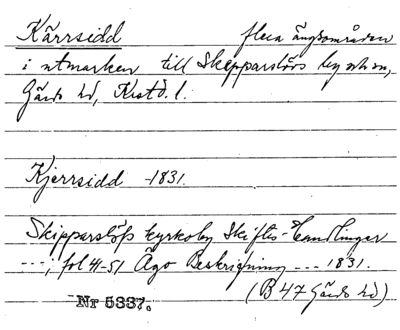 Kärrsidd flera ängsområden
i utmarken till Skepparslövs by o. sn,
Gärds hd, Krstd. l.
Kjerrsidd -1831.
Skipparslöfs kyrkoby Skiftes-Handlingar
---, fol 41-51 Ägo Beskrifning --- 1831.
(B 47 Gärds hd)
Nr 5337.